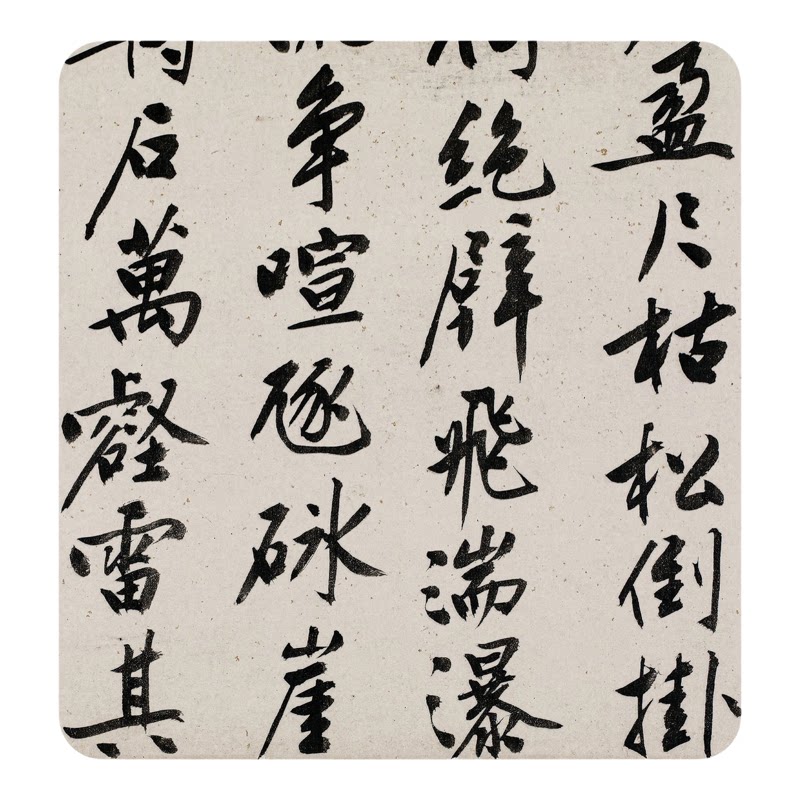 盈尺枯松倒掛
絶壁飛湍瀑
争喧豗砯崖
石萬壑雷其